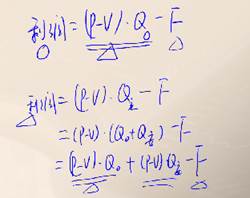 利润=(P-V)·Q₀-F
利润=(P-V)·Q总-F
=(P-V)·(Q₀+Q总)-F
=(P-V)·Q₀+(P-V)Q总-F